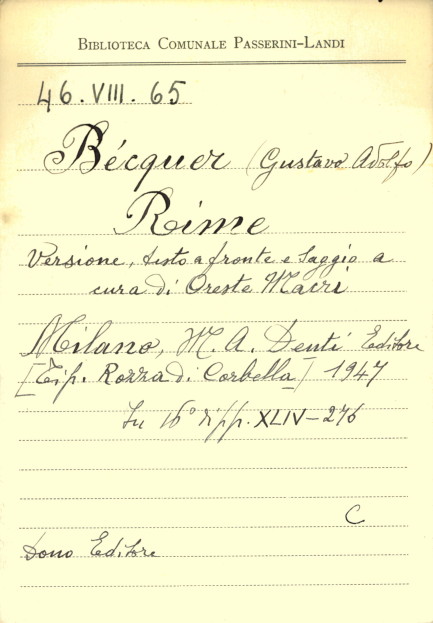 BIBLIOTECA COMUNALE PASSERINI-LANDI
46. VIII. 65
Bécquer (Gustavo Adolfo)
Rime
Versione, testo a fronte e Saggio a
cura di Oreste Macrì
Milano, M. A. Denti Editore
[Tip. Rozza di Corbella] 1947
In 16° di pp. XLIV-276
C
Dono Editore